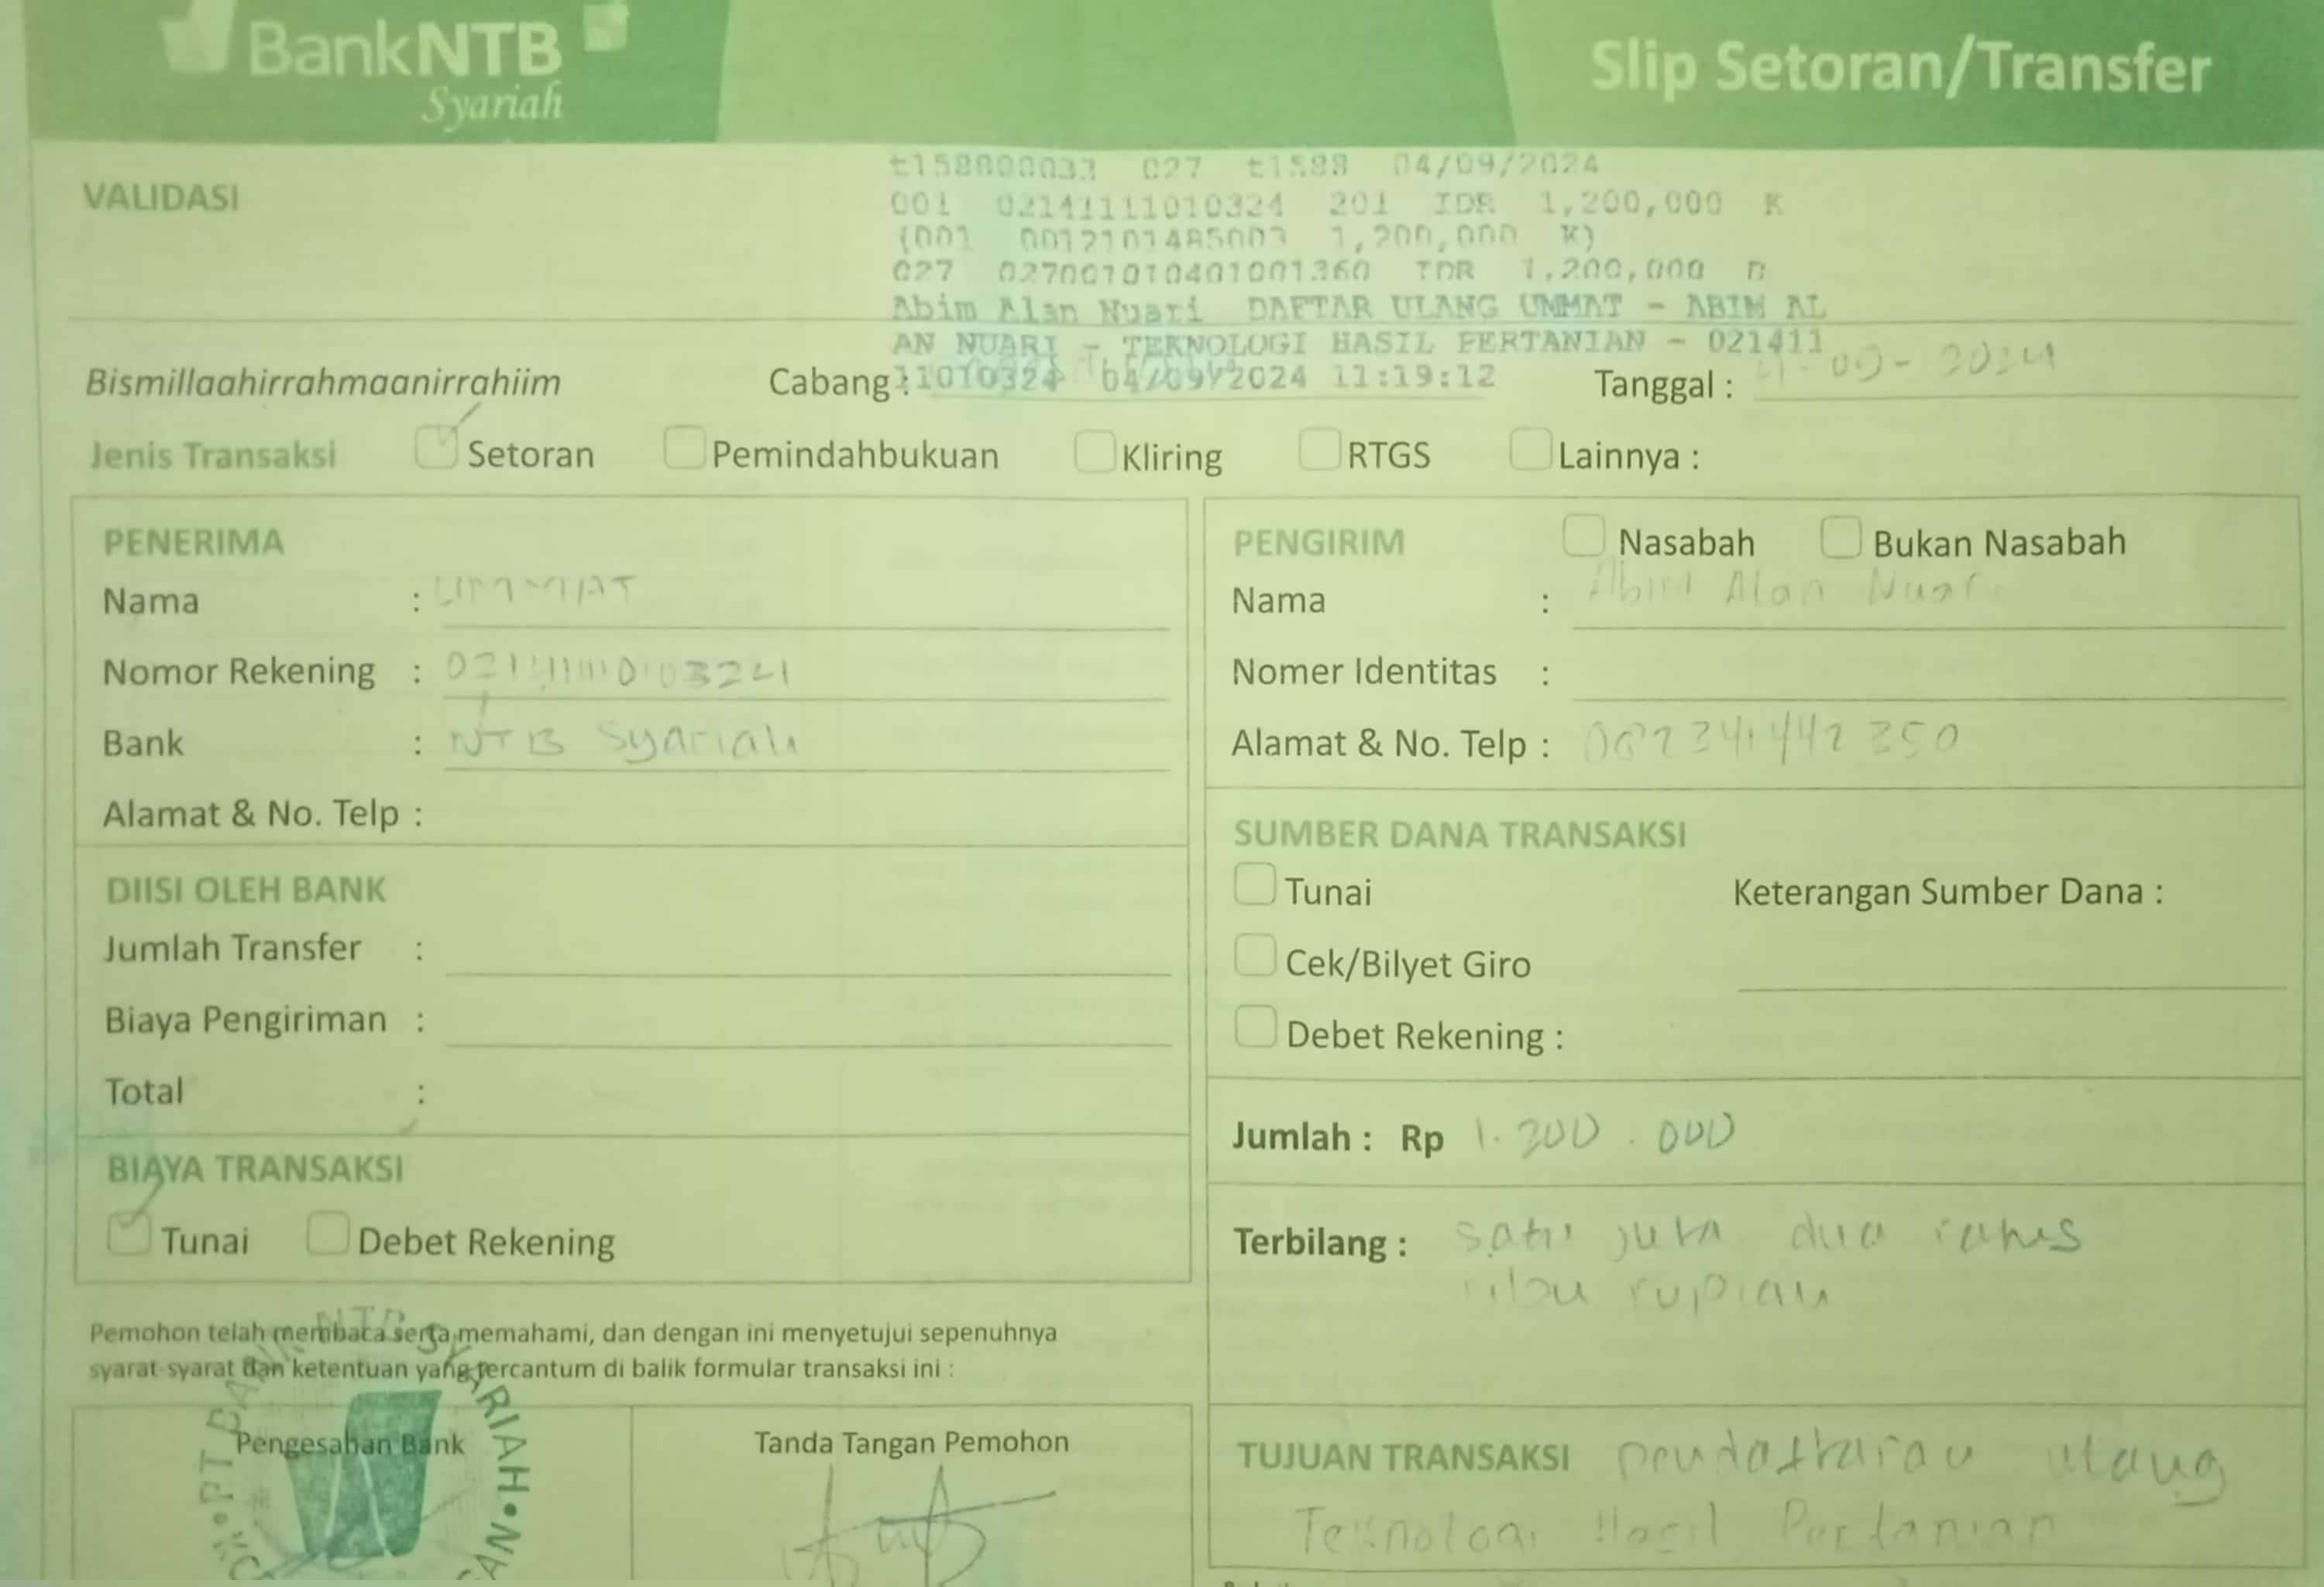 BankNTB
Syariah
Slip Setoran/Transfer
VALIDASI
t158800033 027 t1588 04/09/2024
001 02141111010324 201 IDR 1,200,000 K
(001 0012101485003 1,200,000 K)
027 027001010401001360 IDR 1,200,000 D
Abim Alan Nuari DAFTAR ULANG UMMAT - ABIM AL
AN NUARI - TEKNOLOGI HASIL PERTANIAN - 021411
11010324 04/09/2024 11:19:12
Bismillaahirrahmaanirrahiim Cabang : Tanggal : 4-09-2024
Jenis Transaksi Setoran Pemindahbukuan Kliring RTGS Lainnya :
PENERIMA
Nama : UMMAT
Nomor Rekening : 02141111010324
Bank : NTB Syariah
Alamat & No. Telp :
DIISI OLEH BANK
Jumlah Transfer :
Biaya Pengiriman :
Total :
BIAYA TRANSAKSI
Tunai Debet Rekening
PENGIRIM Nasabah Bukan Nasabah
Nama : Abim Alan Nuari
Nomer Identitas :
Alamat & No. Telp :
SUMBER DANA TRANSAKSI
Tunai Keterangan Sumber Dana :
Cek/Bilyet Giro
Debet Rekening :
Jumlah : Rp 1.200.000
Terbilang : satu juta dua ratus
ribu rupiah
Pemohon telah membaca serta memahami, dan dengan ini menyetujui sepenuhnya
syarat-syarat dan ketentuan yang tercantum di balik formular transaksi ini :
Pengesahan Bank
Tanda Tangan Pemohon
TUJUAN TRANSAKSI pendaftaran ulang
Teknologi Hasil Pertanian
PT BANK NTB SYARIAH